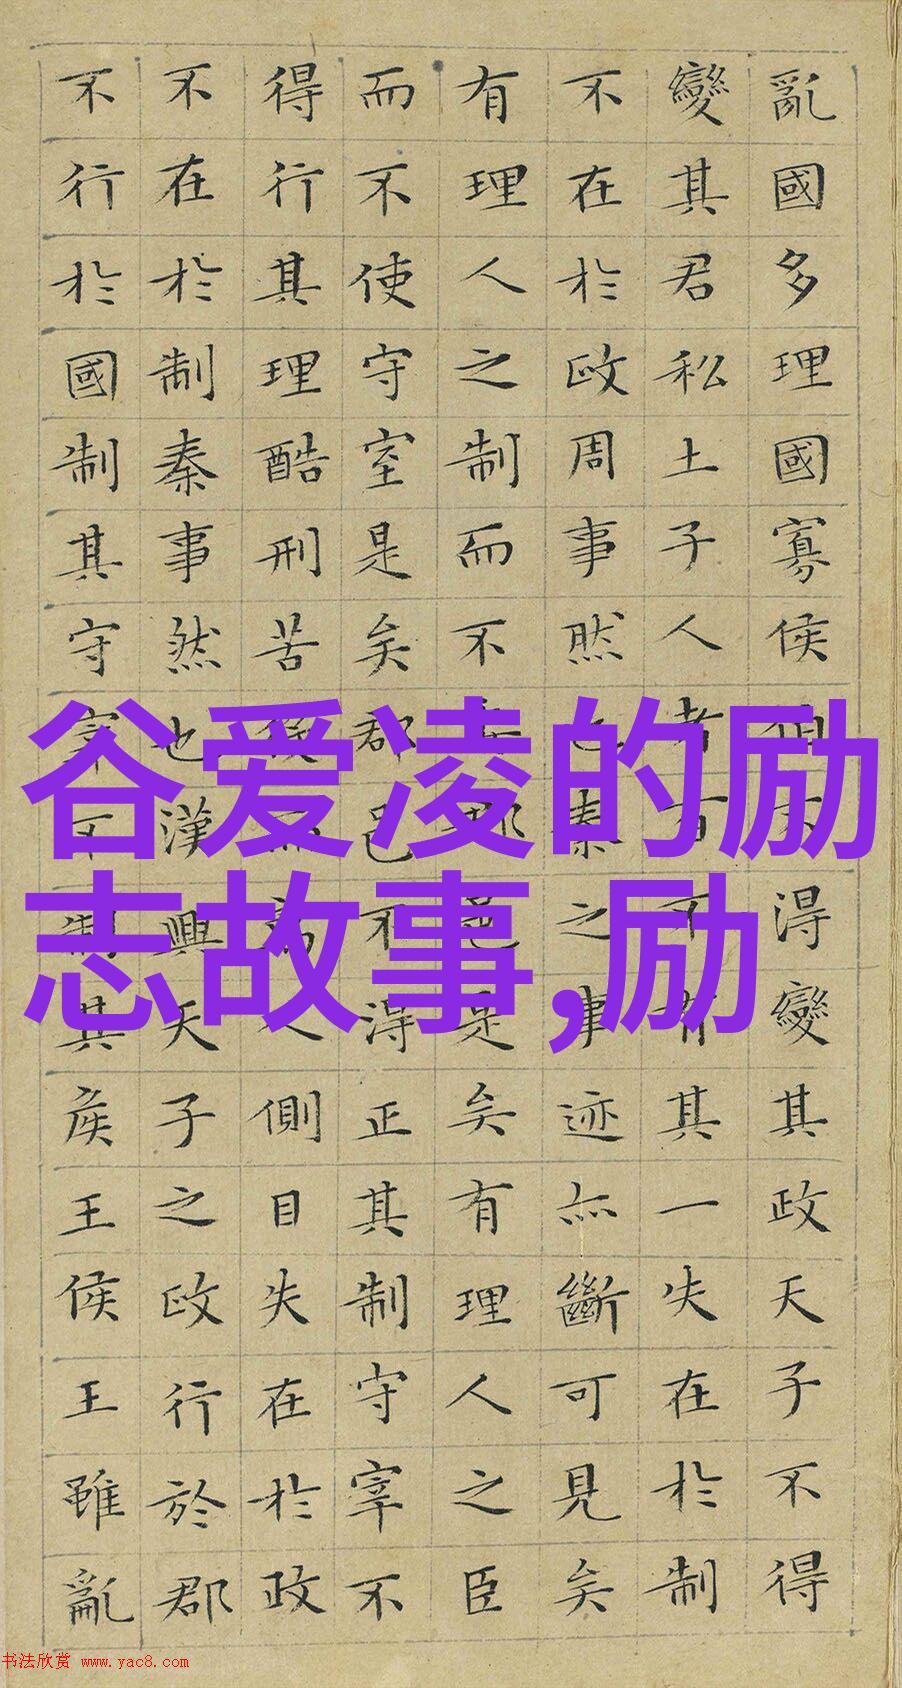 亂國多理國寡侯伯不得變其政天子不得
變其君私土子人者百不有其一失在於制
不在於政周事然也秦之事迹亦斷可見矣
有理人之制而不委郡邑是矣有理人之臣
而不使守宰是矣郡邑不得正其制守宰不
得行其理酷刑苦役而萬人側目失在於政
不在於制秦事然也漢興天子之政行於郡
不行於國制其守宰不制其侯王侯王雖亂
谷爱凌的励
志故事,励
书法欣赏 www.yac8.com